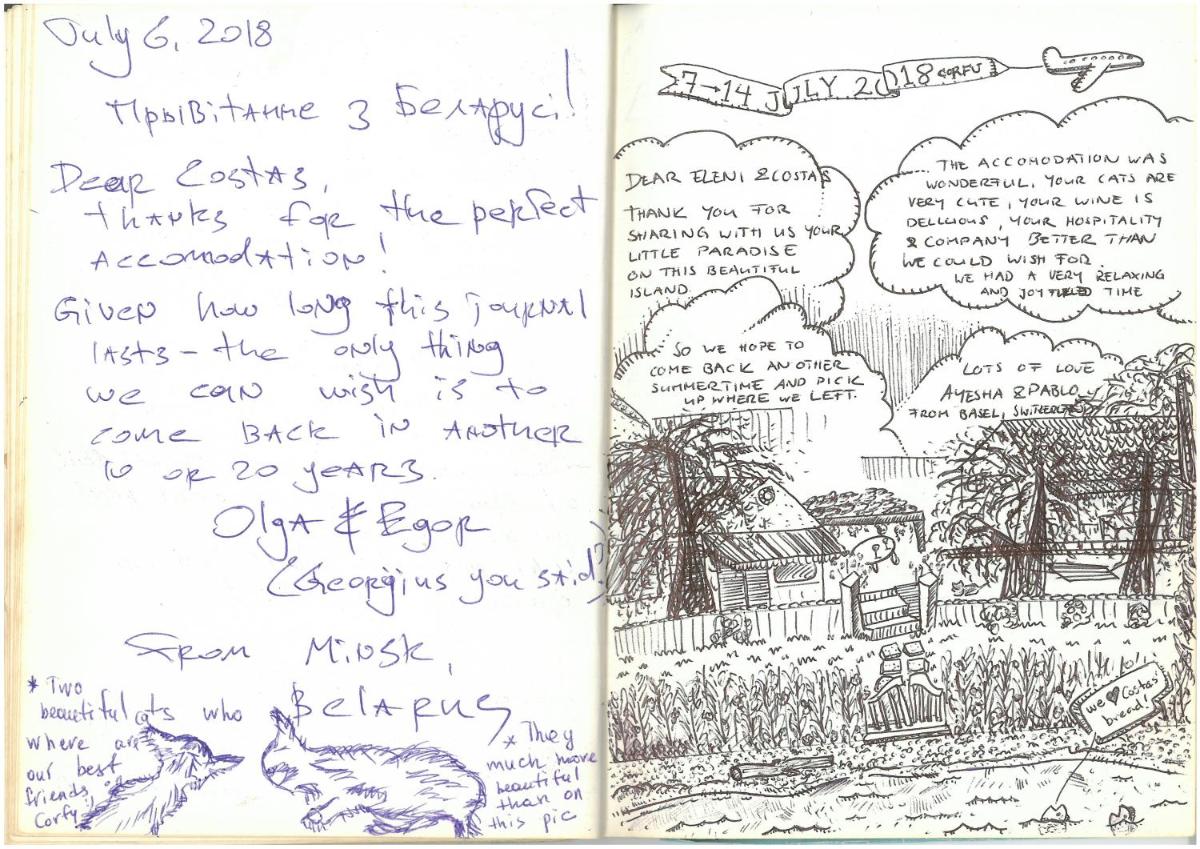 July 6, 2018
Прывітанне з Беларусі!
Dear Costas,
thanks for the perfect
accomodation!
Given how long this journal
lasts – the only thing
we can wish is to
come BACK in ANOTHER
10 or 20 years.
Olga & Egor
(Georgius you said?)
From Minsk,
Belarus
* Two
beautiful cats who
where are
our best
friends
Corfy
* They
much more
beautiful
than on
this pic
7→14 JULY 2018 CORFU
DEAR ELENI & COSTAS
THANK YOU FOR
SHARING WITH US YOUR
LITTLE PARADISE
ON THIS BEAUTIFUL
ISLAND.
THE ACCOMODATION WAS
WONDERFUL, YOUR CATS ARE
VERY CUTE, YOUR WINE IS
DELICIOUS, YOUR HOSPITALITY
& COMPANY BETTER THAN
WE COULD WISH FOR.
WE HAD A VERY RELAXING
AND JOYFULED TIME
SO WE HOPE TO
COME BACK ANOTHER
SUMMERTIME AND PICK
UP WHERE WE LEFT.
LOTS OF LOVE
AYESHA & PABLO
FROM BASEL, SWITZERLAND
we ♥ Costas'
bread!